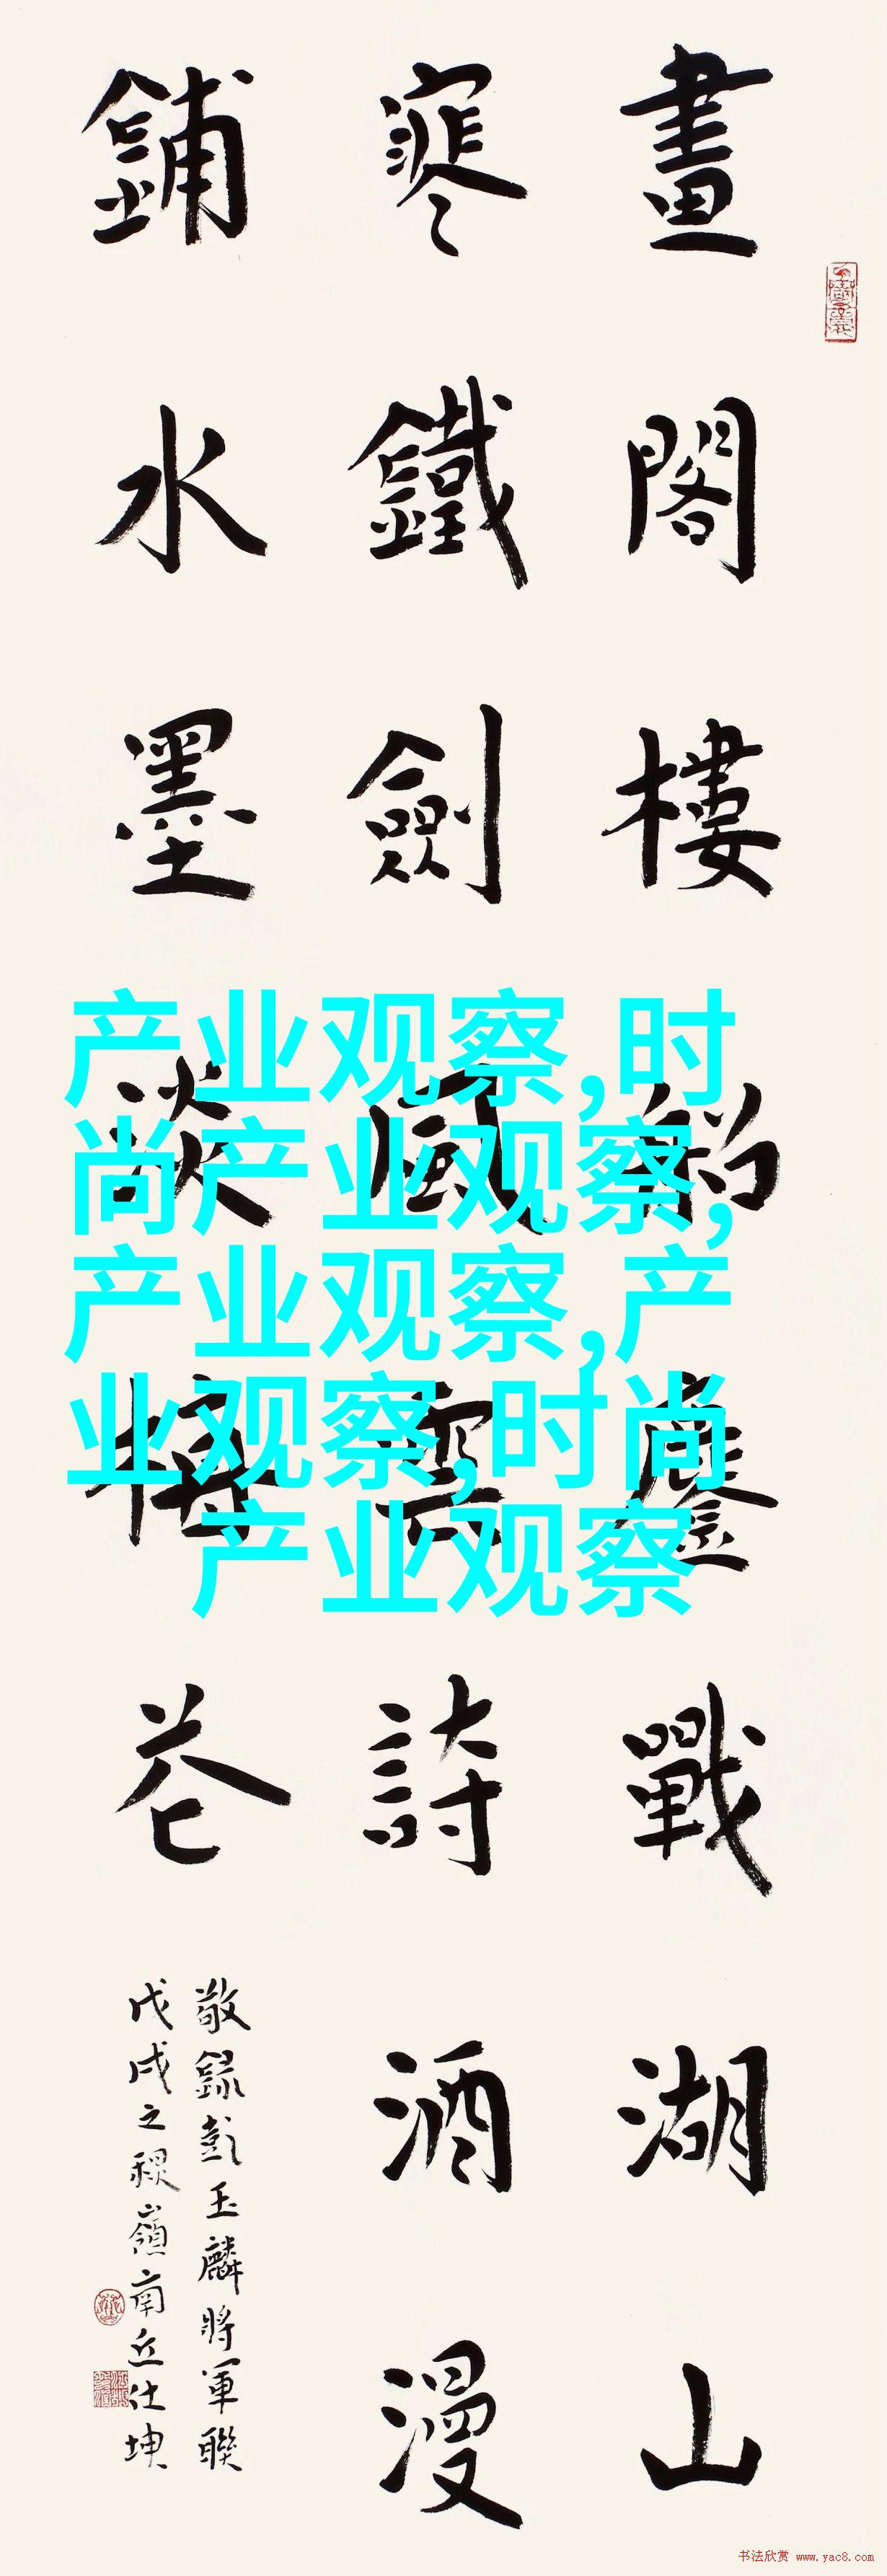 畫閣樓船鏖戰湖山
寒鐵劍風雲詩酒漫
鋪水墨淡梅花
敬錄彭玉麟將軍聯
戊戌之嶺南丘仕坤
产业观察,时
尚产业观察,
产业观察,产
业观察,时尚
产业观察
书法欣赏 www.yac8.com